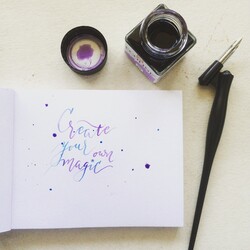 Create
your own
magic